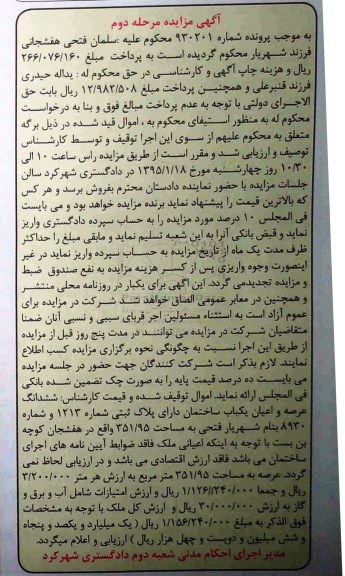 آگهی مزایده مرحله دوم
به موجب پرونده شماره ۹۳۰۲۰۱ محکوم علیه :سلمان فتحی هفشجانی
فرزند شهریار محکوم گردیده است به پرداخت مبلغ ۲۶۶/۰۷۶/۱۶۰
ریال و هزینه چاپ آگهی و کارشناسی در حق محکوم له : یداله حیدری
فرزند قنبرعلی و همچنین پرداخت مبلغ ۱۲/۹۸۲/۵۰۸ ریال بابت حق
الاجرای دولتی با توجه به عدم پرداخت مبالغ فوق و بنا به درخواست
محکوم له به منظور استیفای محکوم به ، اموال قید شده در ذیل برگه
متعلق به محکوم علیهم از سوی این اجرا توقیف و توسط کارشناس
توصیف و ارزیابی شد و مقرر است از طریق مزایده راس ساعت ۱۰ الی
۱۰/۳۰ روز چهارشنبه مورخ ۱۳۹۵/۱/۱۸ در دادگستری شهرکرد سالن
جلسات مزایده با حضور نماینده دادستان محترم بفروش برسد و هر کس
که بالاترین قیمت را پیشنهاد نماید برنده مزایده خواهد بود و می بایست
فی المجلس ۱۰ درصد مورد مزایده را به حساب سپرده دادگستری واریز
نماید و قبض بانکی آنرا به این شعبه تسلیم نماید و مابقی مبلغ را حداکثر
ظرف مدت یک ماه از تاریخ مزایده به حساب سپرده واریز نماید در غیر
اینصورت وجوه واریزی پس از کسر هزینه مزایده به نفع صندوق ضبط
و مزایده تجدیدمی گردد. این آگهی برای یکبار در روزنامه محلی منتشر
و همچنین در معابر عمومی الصاق خواهد شد شرکت در مزایده برای
عموم آزاد است به استثناء مسئولین اجر قربای سببی و نسبی آنان ضمنا
متقاضیان شرکت در مزایده می توانند در مدت پنج روز قبل از مزایده
از طریق این اجرا نسبت به چگونگی نحوه برگزاری مزایده کسب اطلاع
نمایند. لازم بذکر است شرکت کنندگان جهت حضور در جلسه مزایده
می بایست ده درصد قیمت پایه را به صورت چک تضمین شده بانکی
فی المجلس ارائه نماید. اموال توقیف شده و قیمت کارشناس: ششدانگ
عرصه و اعیان یکباب ساختمان دارای پلاک ثبتی شماره ۱۲۱۳ و شماره
۸۹۳۰ بنام شهریار فتحی به مساحت ۳۵۱/۹۵ واقع در هفشجان کوچه
بن بست با توجه به اینکه اعیانی ملک فاقد ضوابط آیین نامه های اجرای
ساختمان می باشد فاقد ارزش اقتصادی می باشد و در ارزیابی لحاظ نمی
گردد. عرصه به مساحت ۳۵۱/۹۵ متر مربع به ارزش هر متر ۳/۲۰۰/۰۰۰
ریال و جمعا ۱/۱۲۶/۲۴۰/۰۰۰ ریال و ارزش امتیازات شامل آب و برق و
گاز به ارزش ۳۰/۰۰۰/۰۰۰ ریال و ارزش کل ملک با توجه به مشخصات
فوق الذکر به مبلغ ۱/۱۵۶/۲۴۰/۰۰۰ ریال ( یک میلیارد و یکصد و پنجاه
و شش میلیون و دویست و چهل هزار ریال ) ارزیابی و اعلام میگردد.
مدیر اجرای احکام مدنی شعبه دوم دادگستری شهرکرد